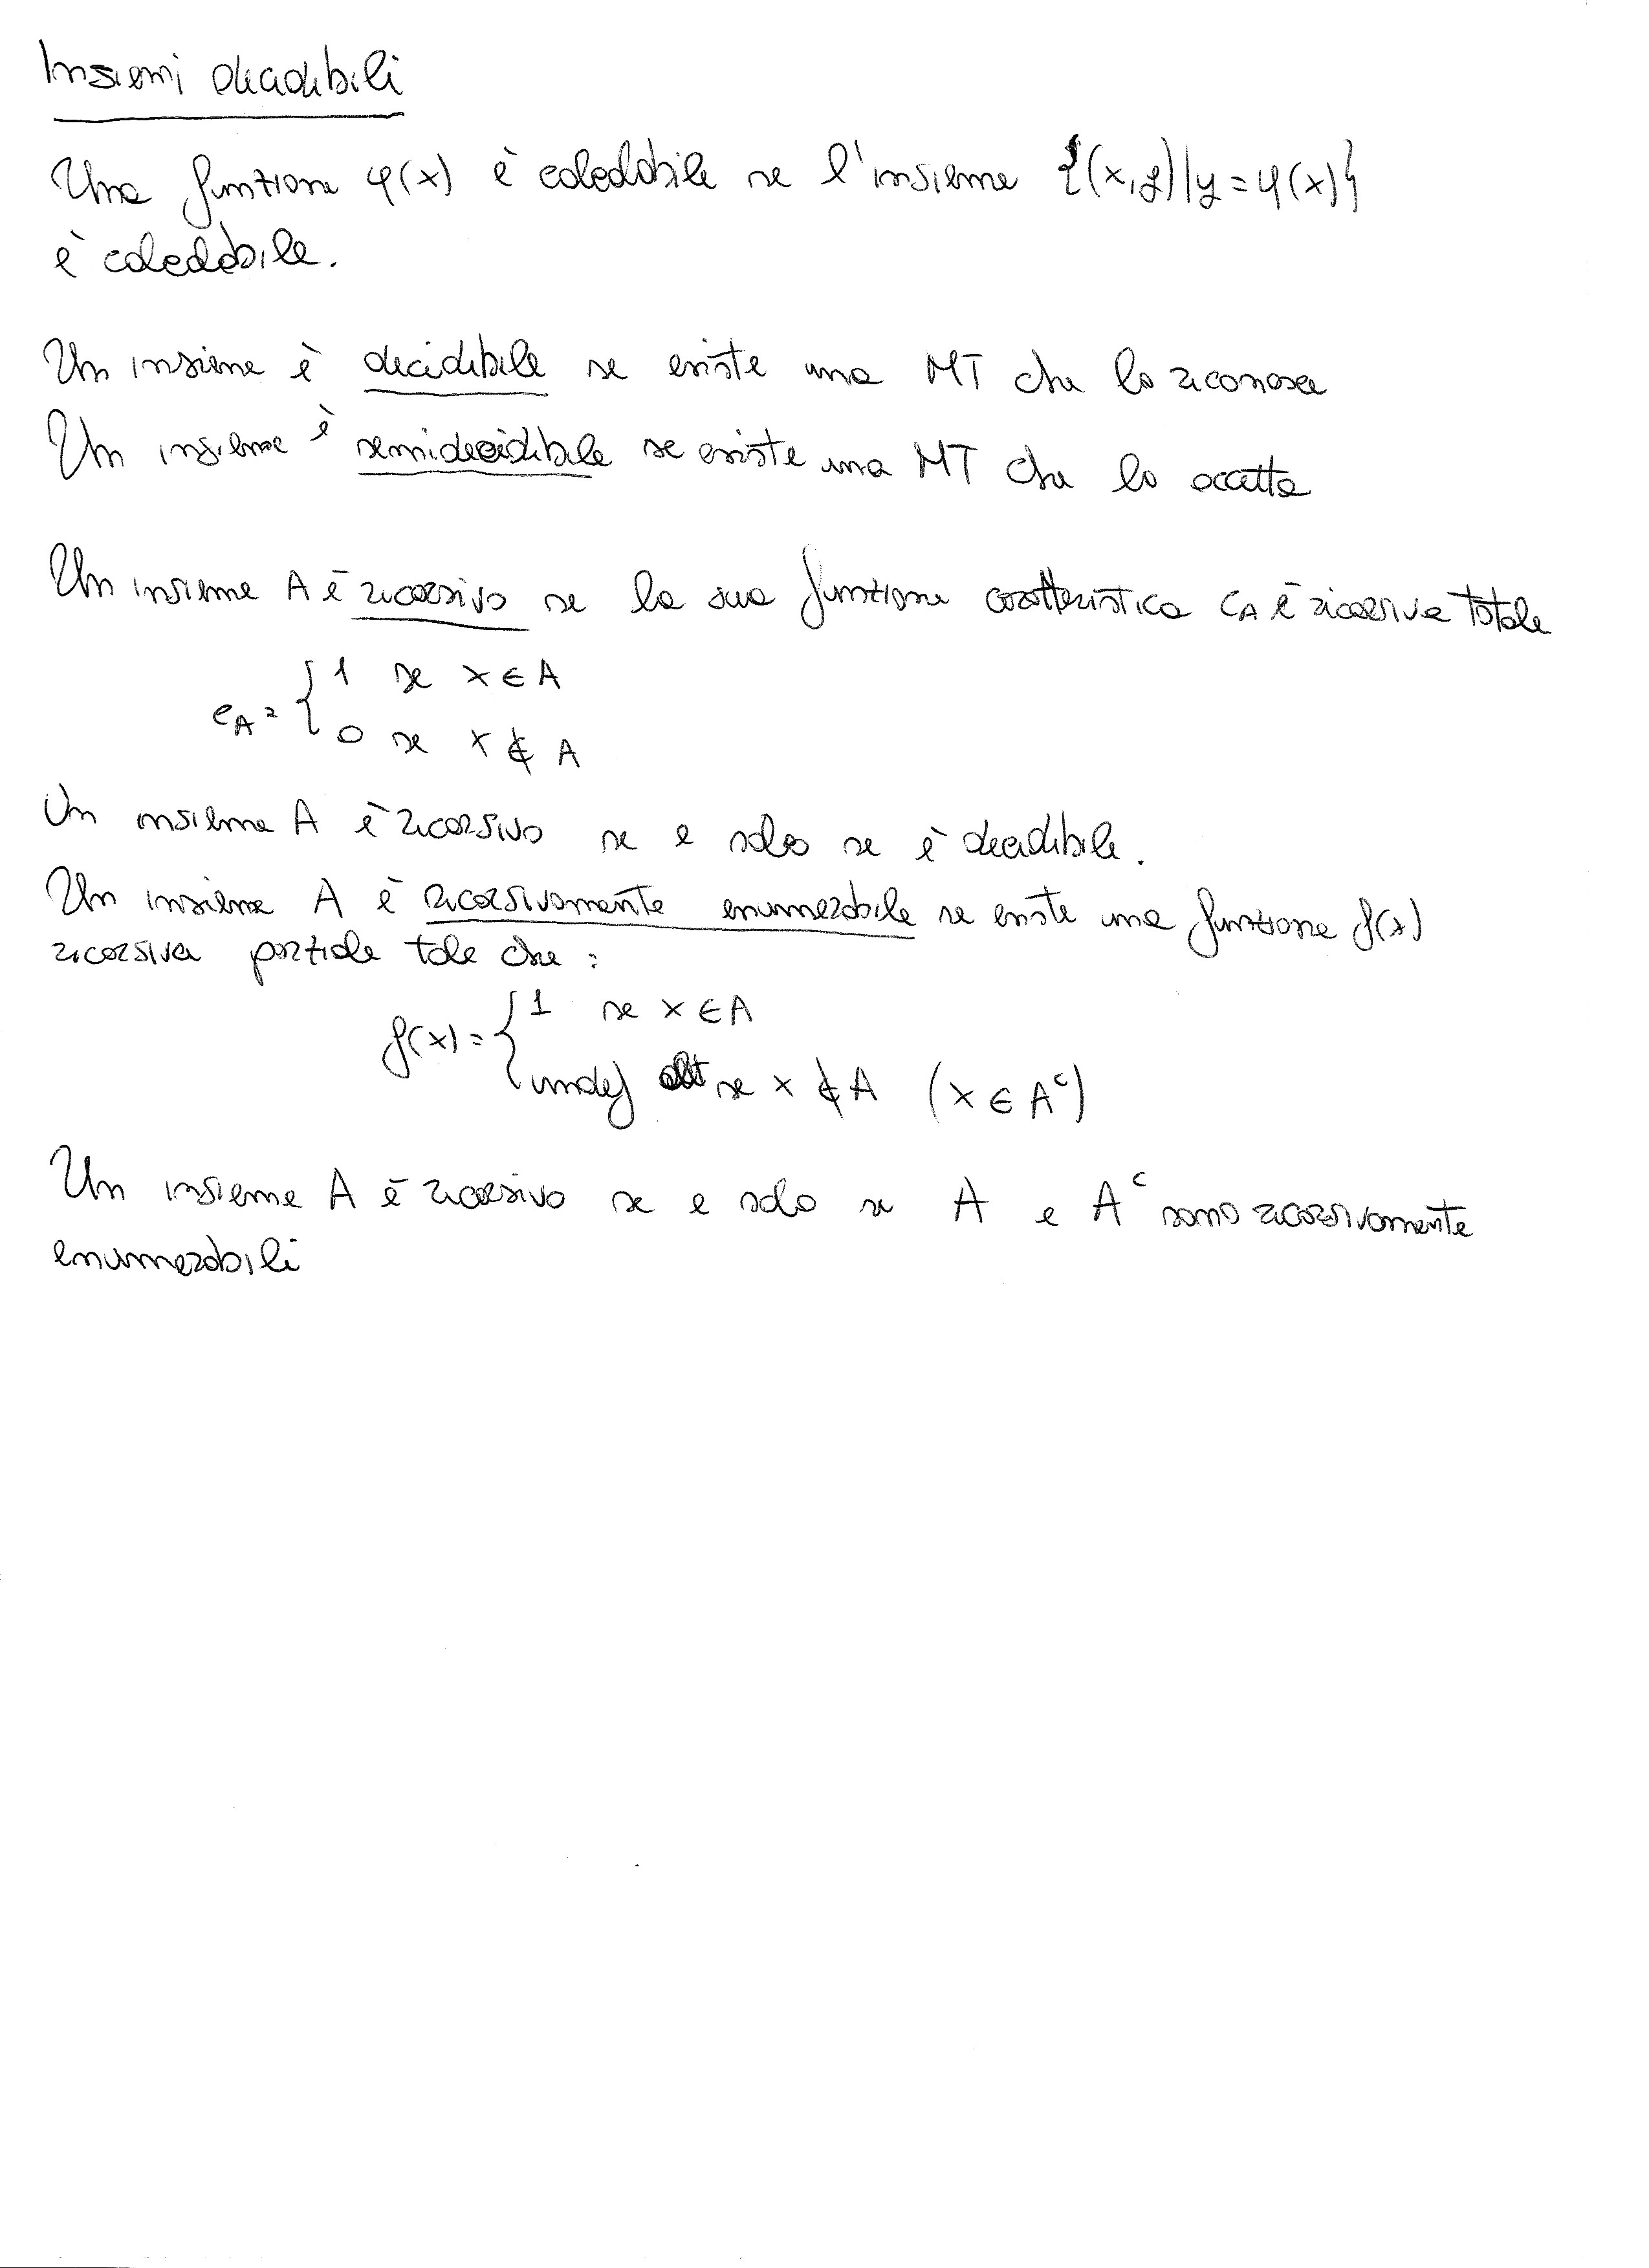 Insiemi decidibili
Una funzione φ(x) è calcolabile se l'insieme {(x,y)|y=φ(x)}
è calcolabile.
Un insieme è decidibile se esiste una MT che lo riconosce
Un insieme è semidecidibile se esiste una MT che lo accetta
Un insieme A è ricorsivo se la sua funzione caratteristica C_A è ricorsiva totale
C_A = { 1 se x ∈ A
0 se x ∉ A
Un insieme A è ricorsivo se e solo se è decidibile.
Un insieme A è ricorsivamente enumerabile se esiste una funzione f(x)
ricorsiva parziale tale che:
f(x) = { 1 se x ∈ A
undef se x ∉ A (x ∈ A^c)
Un insieme A è ricorsivo se e solo se A e A^c sono ricorsivamente
enumerabili